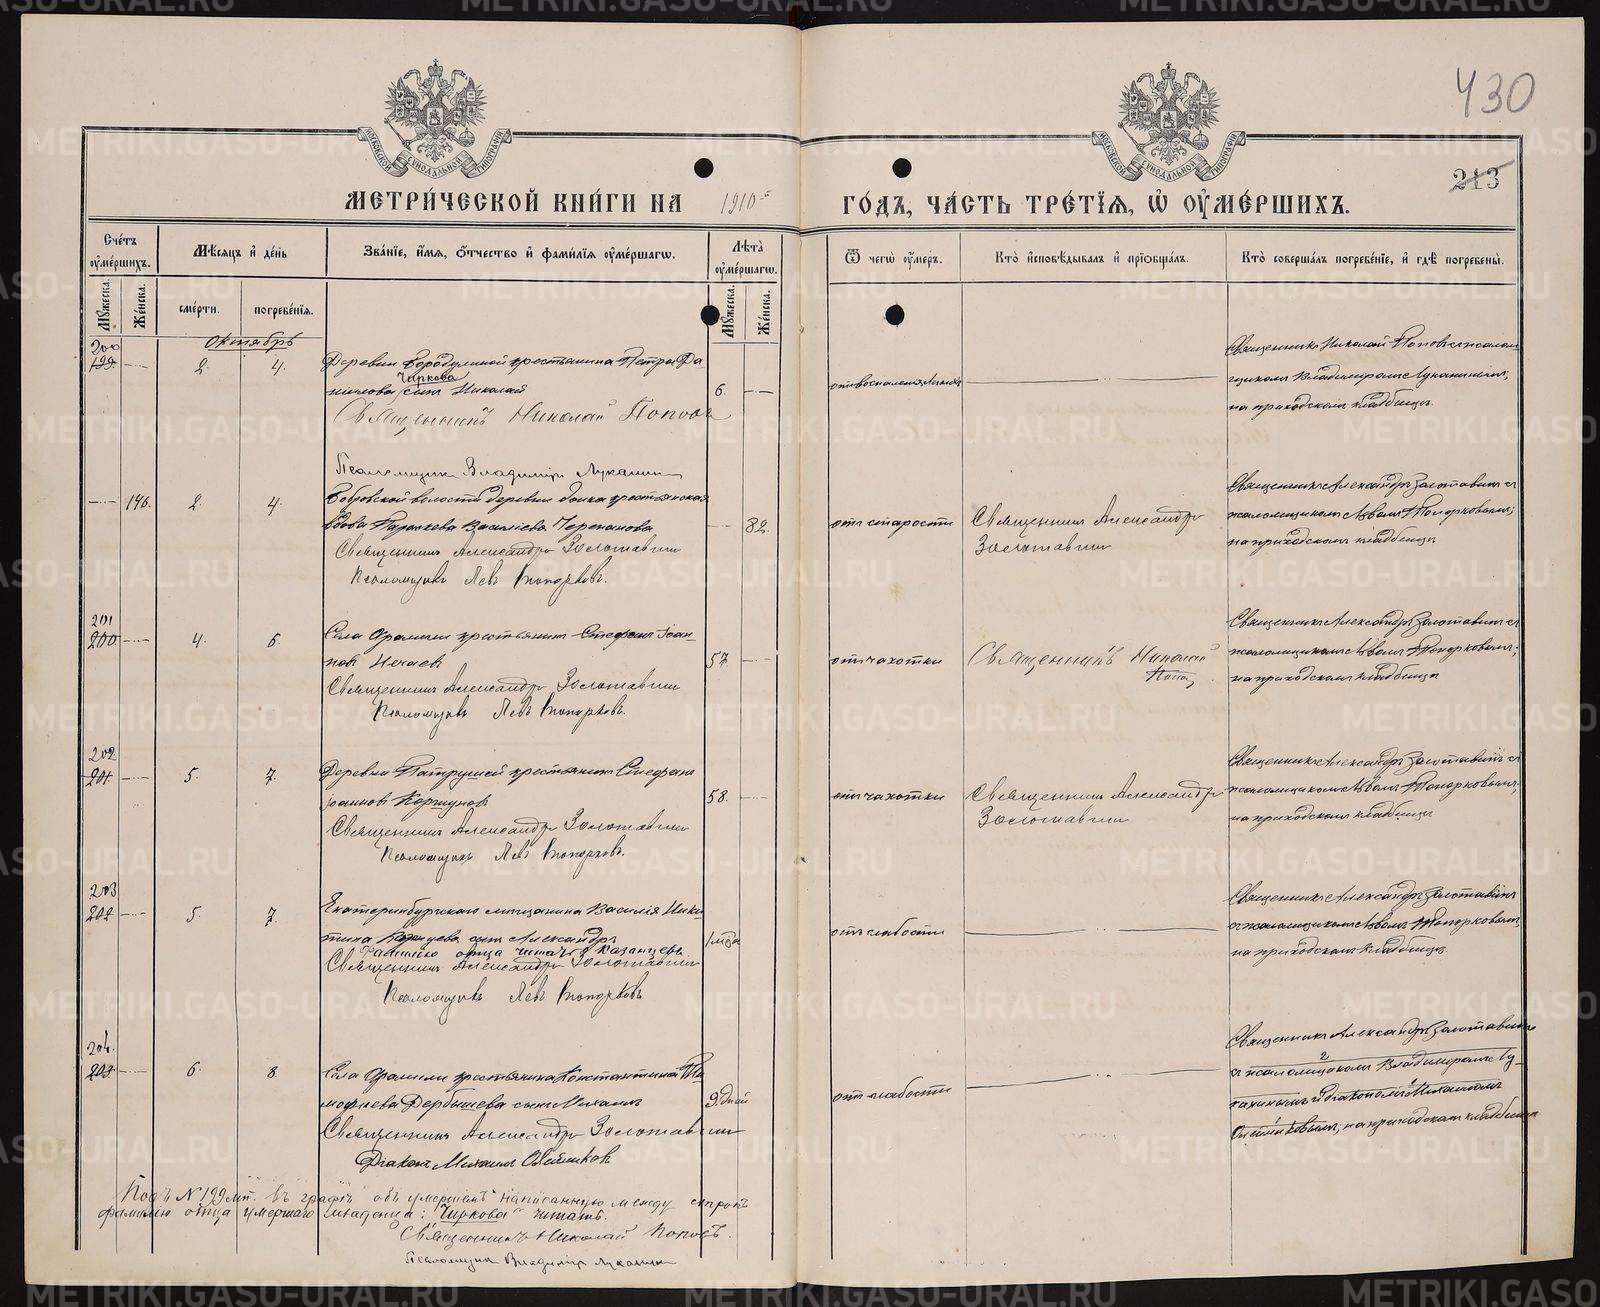 430
213
МОСКОВСКОЙ СѴНОДАЛЬНОЙ ТИПОГРАФІИ
МОСКОВСКОЙ СѴНОДАЛЬНОЙ ТИПОГРАФІИ
МЕТРИ́ЧЕСКОЙ КНИ́ГИ НА 1910-й ГО́ДЪ, ЧА́СТЬ ТРЕ́ТІѦ, Ѡ҆ ОУ҆МЕ́РШИХЪ.
Сче́тъ оу҆ме́ршихъ.
Мꙋ́жеска.
Же́нска.
Мѣ́сѧцъ и҆ де́нь
сме́рти.
погребе́нїѧ.
Зва́нїе, и҆́мѧ, ѻ҆́тчество и҆ фами́лїѧ оу҆ме́ршагѡ.
Лѣ́та оу҆ме́ршагѡ.
Мꙋ́жеска.
Же́нска.
Ѿ чегѡ̀ оу҆́меръ.
Кто̀ и҆сповѣ́дывалъ и҆ прїѡбща́лъ.
Кто̀ соверша́лъ погребе́нїе, и҆ гдѣ̀ погребены̀.
Октябрь
200
199. 2. 4. Деревни Бородулиной крестьянина Петра Да-
Чиркова
ниилова сынъ Николай 6.
Священникъ Николай Поповъ
Псаломщик Владимір Луканин
отъ воспаленія легкихъ
Священникъ Николай Поповъ съ псалом-
щикомъ Владимиромъ Луканинымъ;
на приходскомъ кладбищѣ.
146. 2. 4. Бобровской волости деревни крестьянская
вдова Параскева Василіева Черепанова 82.
Священникъ Александръ Золотавинъ
Псаломщикъ Левъ Топорковъ.
отъ старости
Священникъ Александръ
Золотавинъ
Священникъ Александръ Золотавинъ съ
псаломщикомъ Львомъ Топорковымъ;
на приходскомъ кладбищѣ
201
200 4. 6. Села Арамили крестьянинъ Стефанъ Іоан-
новъ Нечаевъ 57.
Священникъ Александръ Золотавинъ
Псаломщикъ Левъ Топорковъ.
отъ чахотки
Священникъ Николай
Попов
Священникъ Александръ Золотавинъ съ
псаломщикомъ Львомъ Топорковымъ;
на приходскомъ кладбищѣ
202
201 5. 7. Деревни Патрушей крестьянинъ Стефанъ
Іоанновъ Коршуновъ 58.
Священникъ Александръ Золотавинъ
Псаломщикъ Левъ Топорковъ.
отъ чахотки
Священникъ Александръ
Золотавинъ
Священникъ Александръ Золотавинъ съ
псаломщикомъ Львомъ Топорковымъ;
на приходскомъ кладбищѣ
203
202 5. 7. Екатеринбургскаго мѣщанина Василія Ники-
тина сынъ Александръ 1 мѣс
Фамилію отца читать: Казанцевъ
Священникъ Александръ Золотавинъ
Псаломщикъ Левъ Топорковъ
отъ слабости
Священникъ Александръ Золотавинъ
съ псаломщикомъ Львомъ Топорковымъ;
на приходскомъ кладбищѣ
204.
203. 6. 8. Села Арамили крестьянина Константина Ти-
мофеева Дербышева сынъ Михаилъ 9 дней
Священникъ Александръ Золотавин
Діаконъ Михаилъ Олейниковъ
отъ слабости
Священникъ Александръ Золотавинъ
2
съ псаломщикомъ Владимиромъ Лу-
1
канинымъ и діакономъ Михаиломъ
Олейниковымъ; на приходскомъ кладбищѣ
Подъ № 199 мп. въ графѣ "объ умершемъ" написанную между строкъ
фамилію отца умершаго младенца: "Чиркова" читать.
Священникъ Николай Поповъ.
Псаломщик Владимір Луканин
METRIKI.GASO-URAL.RU